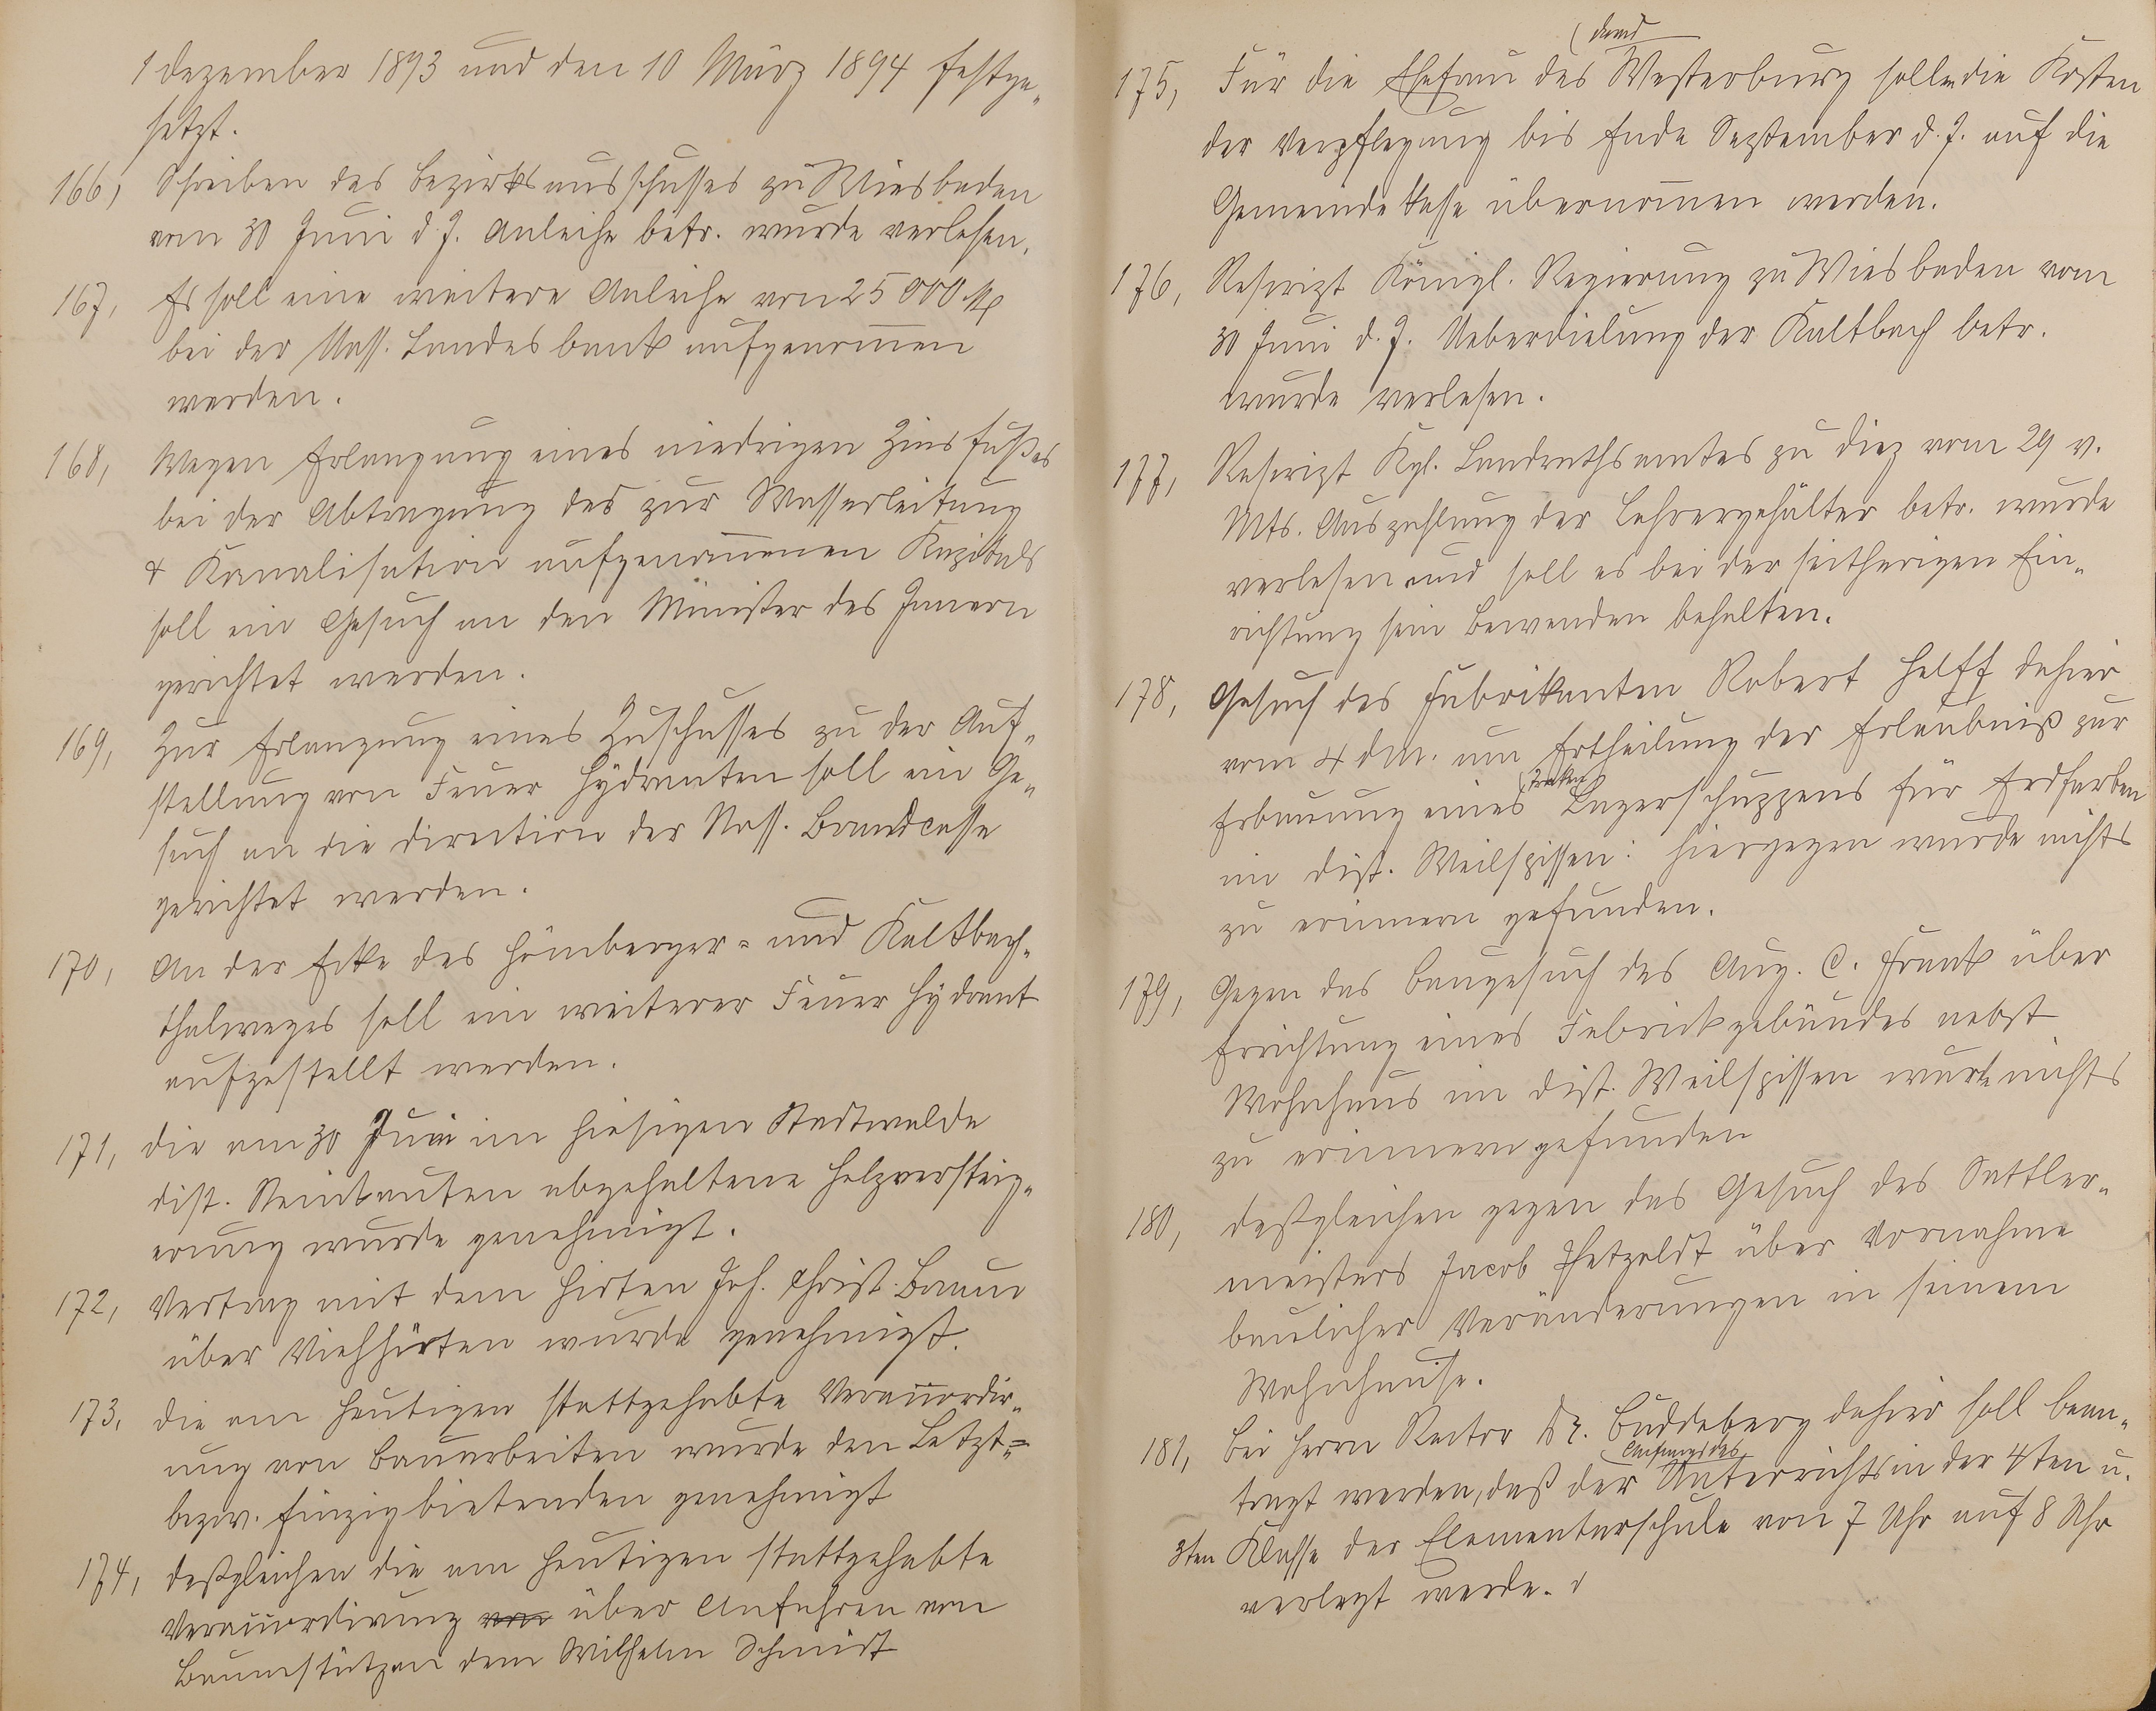 1 Dezember 1893 und den 10 März 1894 festge-
setzt.
166, Schreiben des Bezirksausschusses zu Wiesbaden
vom 30 Juni d. J. Anleihe betr. wurde verlesen.
167, Es soll eine weitere Anleihe von 25000 M
bei der Nass. Landesbank aufgenom̅en
werden.
168, Wegen Erlangung eines niedrigen Zinsfußes
bei der Abtragung des zur Wasserleitung
& Kanalisation aufgenom̅enen Kapitals
soll ein Gesuch an den Minister des Innern
gerichtet werden.
169, Zur Erlangung eines Zuschusses zu der Auf-
stellung von Feuer Hydranten soll ein Ge-
such an die Direction der Nass. Brandcasse
gerichtet werden.
170, An der Ecke des Hömberger- und Kaltbach-
thalweges soll ein weiterer Feuer Hydrant
aufgestellt werden.
171, Die am 30 Juni im hiesigen Stadtwalde
Dist. Steinkauten abgehaltene Holzversteig-
erung wurde genehmigt.
172, Vertrag mit dem Hirten Joh. Christ. Braun
über Viehhüten wurde genehmigt.
173, Die am Heutigen stattgehabte Veraccordir-
ung von Bauarbeiten wurde den Letzt-
bezw. Einzigbietenden genehmigt
174, Deßgleichen die am Heutigen stattgehabte
Veraccordirung von über Anfahren von
Baumstützen dem Wilhelm Schmidt
175, Für die Ehefrau des David Westerburg sollen die Kosten
der Verpflegung bis Ende September d. J. auf die
Gemeindekasse übernom̅en werden.
176, Rescript Königl. Regierung zu Wiesbaden vom
30 Juni d. J. Ueberdielung der Kaltbach betr.
wurde verlesen.
177, Rescript Kgl. Landrathsamtes zu Diez vom 29 v.
Mts. Auszahlung der Lehrergehälter betr. wurde
verlesen und soll es bei der seitherigen Ein-
richtung sein Bewenden behalten.
178, Gesuch des Fabrikanten Robert Helff dahier
vom 4 d M. um Ertheilung der Erlaubniß zur
Erbauung eines Lagerschuppens für Erdfarben
im Dist. Weilspissen: Hiergegen wurde nichts
zu erinnern gefunden.
179, Gegen das Baugesuch des Aug. C. Frank über
Errichtung eines Fabrickgebäudes nebst
Wohnhaus im Dist. Weilspissen wurde nichts
zu erinnern gefunden
180, Deßgleichen gegen das Gesuch des Sattler-
meisters Jacob Petzoldt über Vornahme
baulicher Veränderungen in seinem
Wohnhause.
181, Bei Herrn Rector Dr. Buddeberg dahier soll bean-
tragt werden, daß der Anfang des Unterrichts in der 4ten u.
3ten Klasse der Elementarschule von 7 Uhr auf 8 Uhr
verlegt werde.